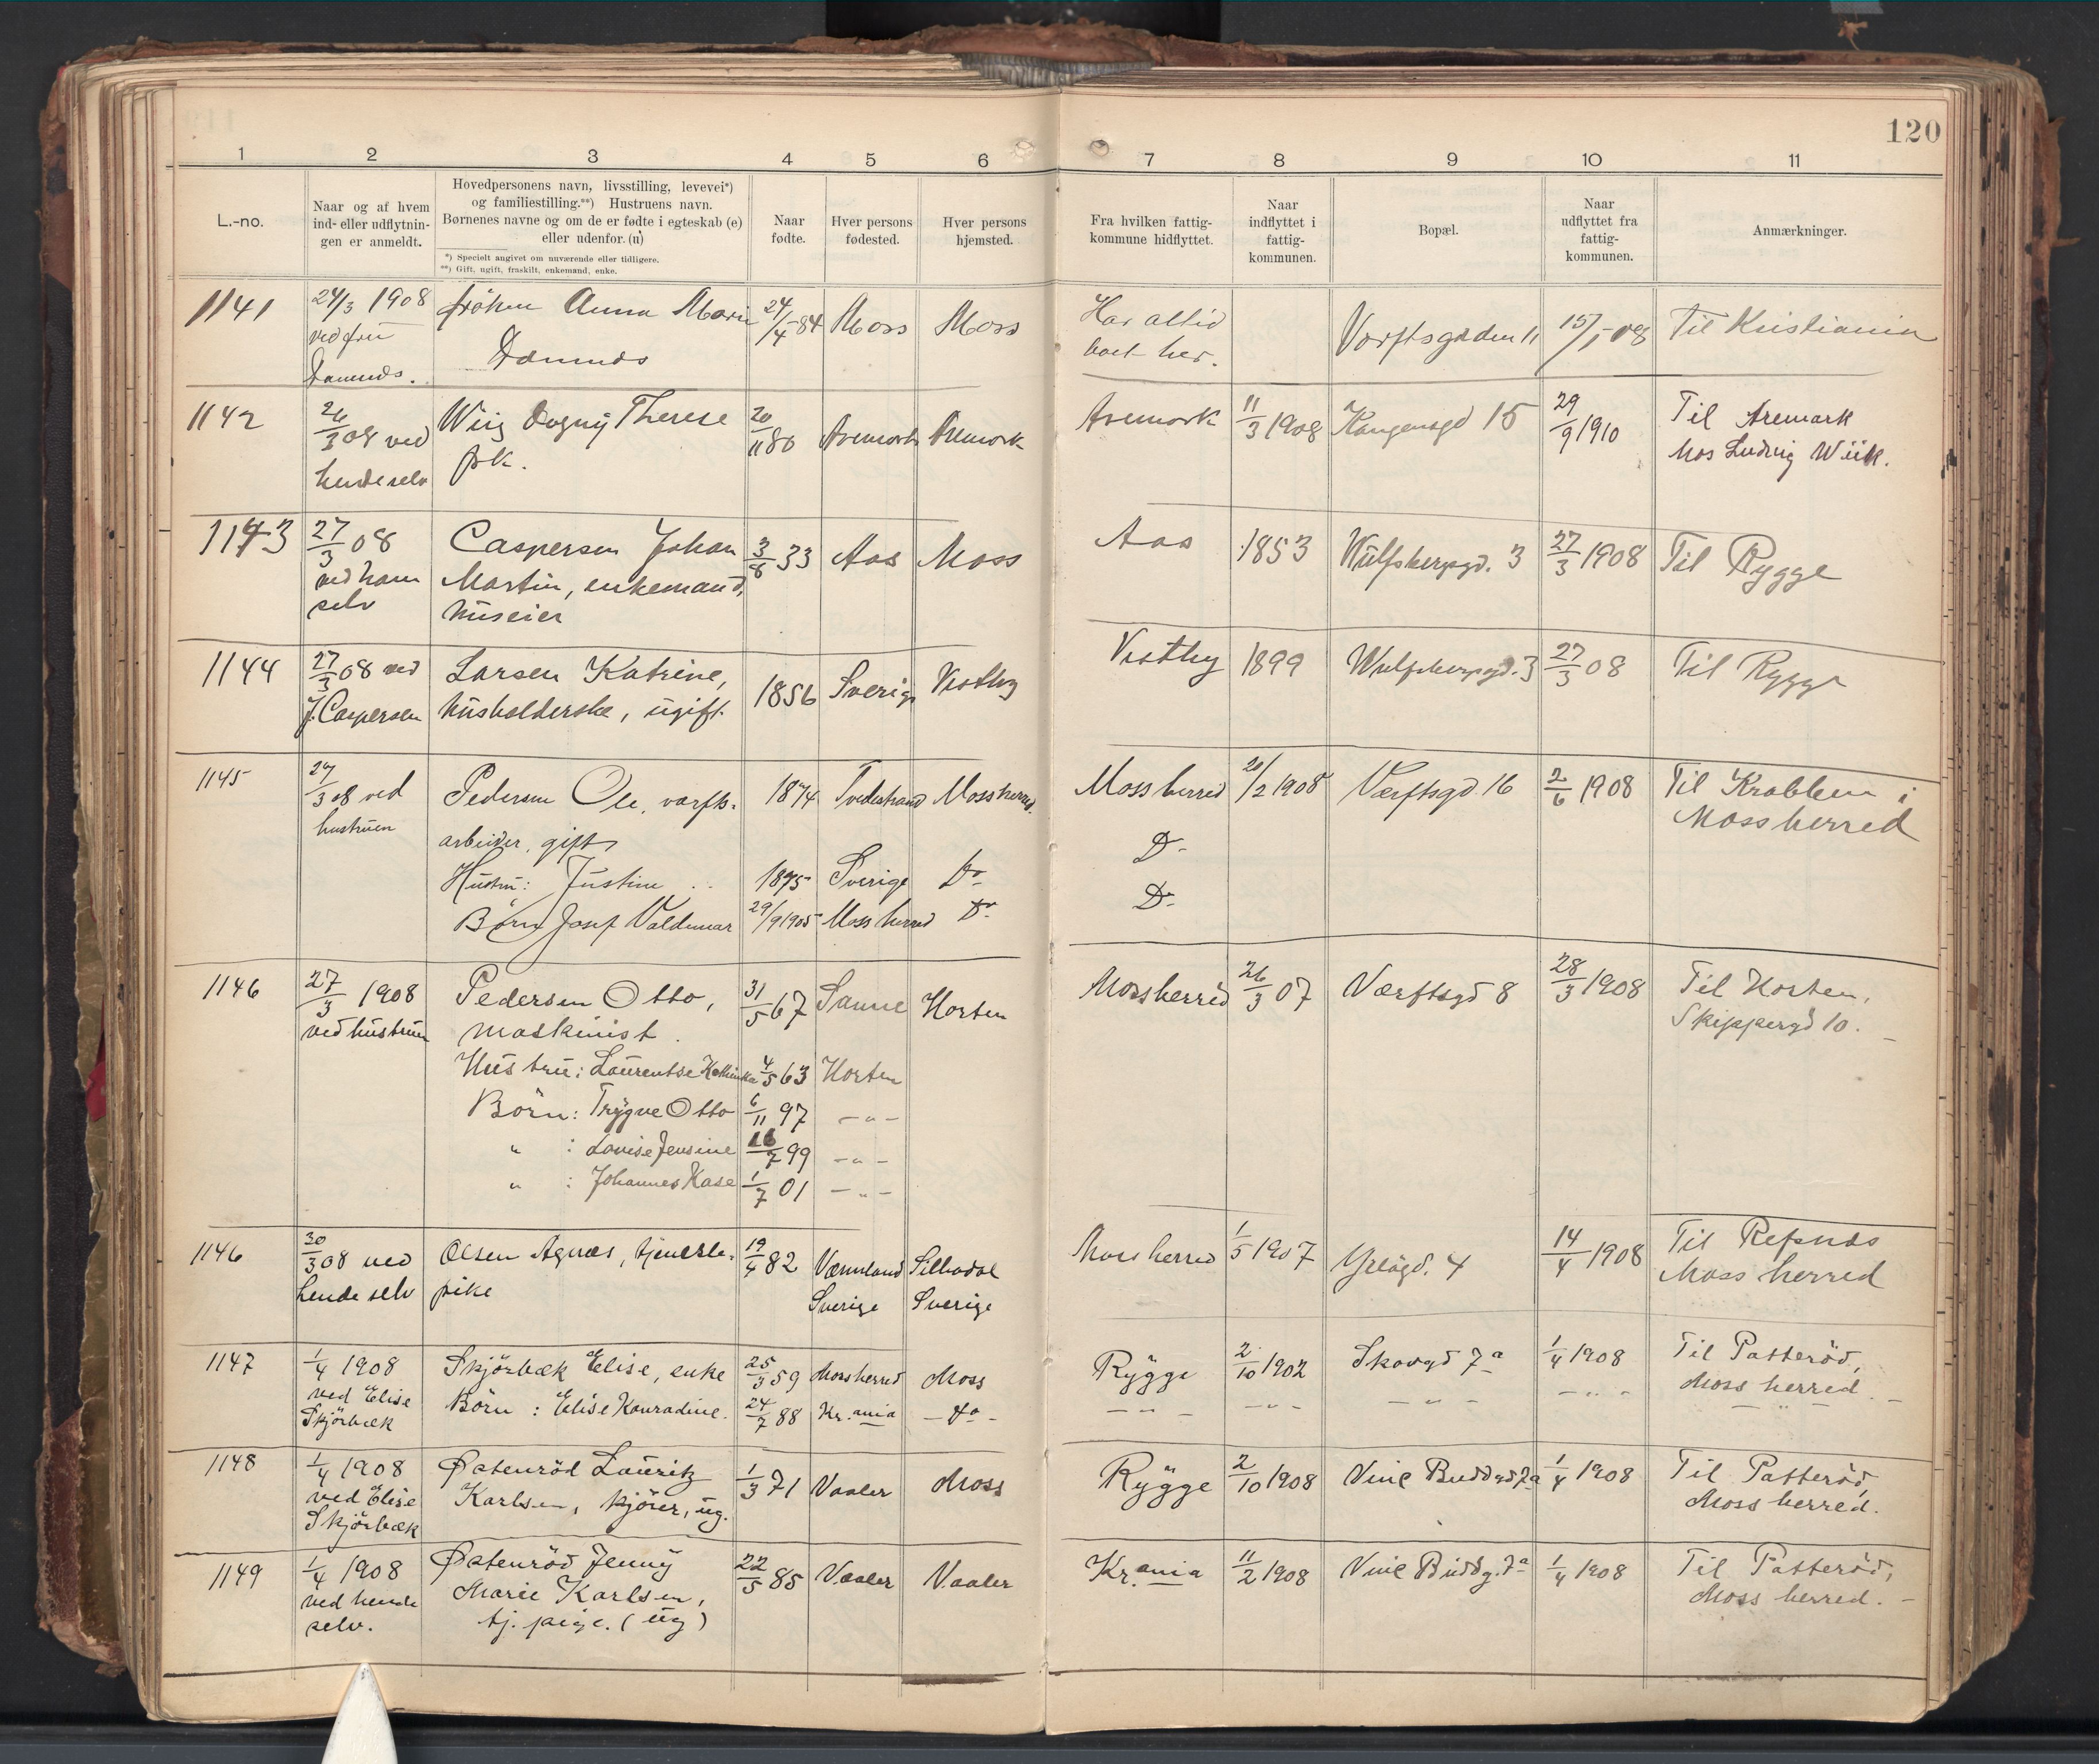 120
1 2 3 4 5 6 7 8 9 10 11
L.-no.
Naar og af hvem
ind- eller udflytnin-
gen er anmeldt.
Hovedpersonens navn, livsstilling, levevei*)
og familiestilling.**) Hustruens navn.
Børnenes navne og om de er fødte i egteskab (e)
eller udenfor. (u)
*) Specielt angivet om nuværende eller tidligere.
**) Gift, ugift, fraskilt, enkemand, enke.
Naar
fødte.
Hver persons
fødested.
Hver persons
hjemsted.
Fra hvilken fattig-
kommune hidflyttet.
Naar
indflyttet i
fattig-
kommunen.
Bopæl.
Naar
udflyttet fra
fattig-
kommunen.
Anmærkninger.
1141 24/3 1908 frøken Anna Marie 24/4-84 Moss Moss Har altid Værftsgaden 11 15/-08 Til Kristiania
ved fru boet her.
1142 26/3 08 ved Wiig Dagny Therese 20/11 80 Aremark Aremark Aremark 11/3 1908 Kongensgd 15 29/9 1910 Til Aremark
hende selv frk. Hos Ludvig Wiik.
1143 27/3 08 Caspersen Johan 3/8 33 Aas Moss Aas 1853 Wulfsbergsgd. 3 27/3 1908 Til Rygge
ved ham Martin, enkemand,
selv huseier
1144 27/3 08 ved Larsen Katrine, 1856 Sverige Vestby Vestby 1899 Wulfsbergsgd. 3 27/3 08 Til Rygge
J. Caspersen husholderske, ugift.
1145 27/3 08 ved Pedersen Ole, værfts- 1874 Tvedestrand Mossherred. Moss herred 20/2 1908 Værftsgd. 16 2/6 1908 Til Krabben i
hustruen arbeider, gift Moss herred
Hustru: Justine 1875 Sverige Do D-
Børn Josef Valdemar 29/9 1905 Moss herred Do D-
1146 27/3 1908 Pedersen Otto, 31/5 67 Sanne Horten Mossherred 26/3 07 Værftsgd 8 28/3 1908 Til Horten,
ved hustruen maskinist. Skippergd 10.
Hustru: Laurentse Kathinka 4/5 63 Horten
Børn: Trygve Otto 6/11 97 -"-
" : Lovise Jensine 16/7 99 -"-
" : Johannes Kase 1/7 01 -"-
1146 30/3 08 ved Olsen Agnæs, tjeneste- 19/4 82 Værmland Silbodal Moss herred 1/5 1907 4 14/4 1908 Til Refsnes
hende selv pike Sverige Sverige Moss herred
1147 1/4 1908 Skjørbæk Elise, enke 25/3 59 Moss herred Moss Rygge 2/10 1902 Skovgd 7a 1/4 1908 Til Patterød,
ved Elise Børn : Elise Konradine. 24/7 88 Kr.ania - do - - " - - " - - " - - " - Moss herred.
Skjørbæk
1148 1/4 1908 Østenrød Lauritz 1/3 71 Vaaler Moss Rygge 2/10 1908 Vine Buddgd 7a 1/4 1908 Til Patterød,
ved Elise Karlsen, kjører, ug. Moss herred.
Skjørbæk
1149 1/4 1908 Østenrød Jenny 22/5 85 Vaaler Vaaler Kr.ania 11/2 1908 Vine Buddg. 7a 1/4 1908 Til Patterød,
ved hende Marie Karlsen, Moss herred.
selv. tj. pige. (ug)